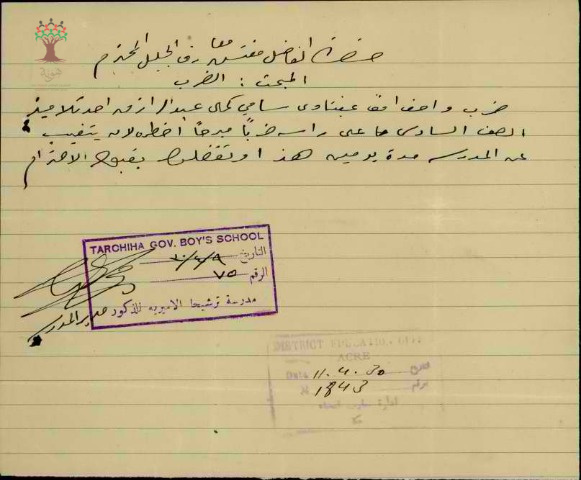 حضرة الفاضل مفتش معارف الجليل المحترم
المبحث : الضرب
ضرب واصف سامي كمال عبد الرازق احد تلاميذ
الصف السادس على راسه ضرباً مبرحاً اضطره لان يتغيب
عن المدرسه مدة يومين هذا وتفضلوا بقبول الاحترام
TARCHIHA GOV. BOY'S SCHOOL
التاريخ ٣٠/٤/٩
الرقم ٧٥
مدرسة ترشيحا الاميرية للذكور
مدير المدرسه
DISTRICT EDUCATION OFF
ACRE
Date 11.4.30
N 1843